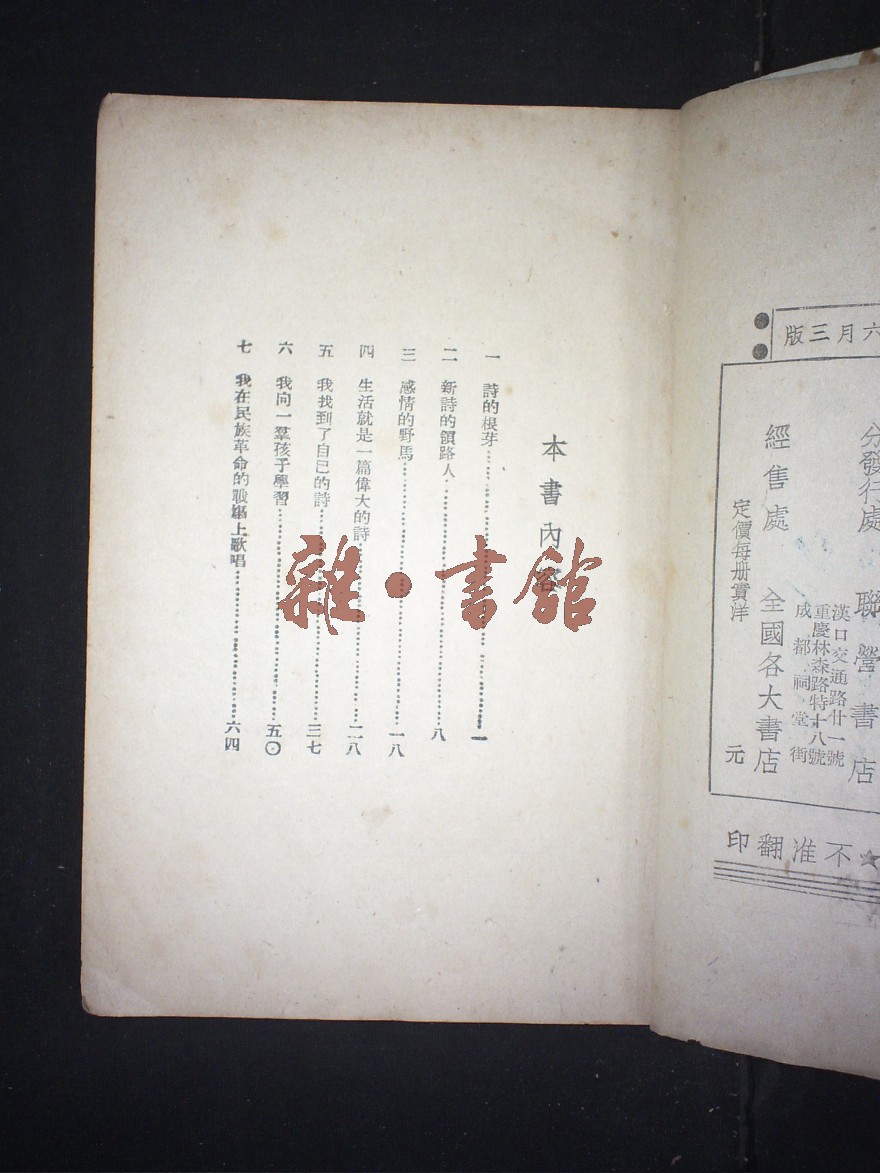 六月三版
分發行處 聯營書店
漢口交通路廿一號
重慶林森路特十八號
成都祠堂街
經售處 全國各大書店
定價每册實洋 元
★不准翻印
本書內容
一 詩的根芽 一
二 新詩的領路人 八
三 感情的野馬 一八
四 生活就是一篇偉大的詩 二八
五 我找到了自己的詩 三七
六 我向一羣孩子學習 五〇
七 我在民族革命的戰場上歌唱 六四
雜·書館